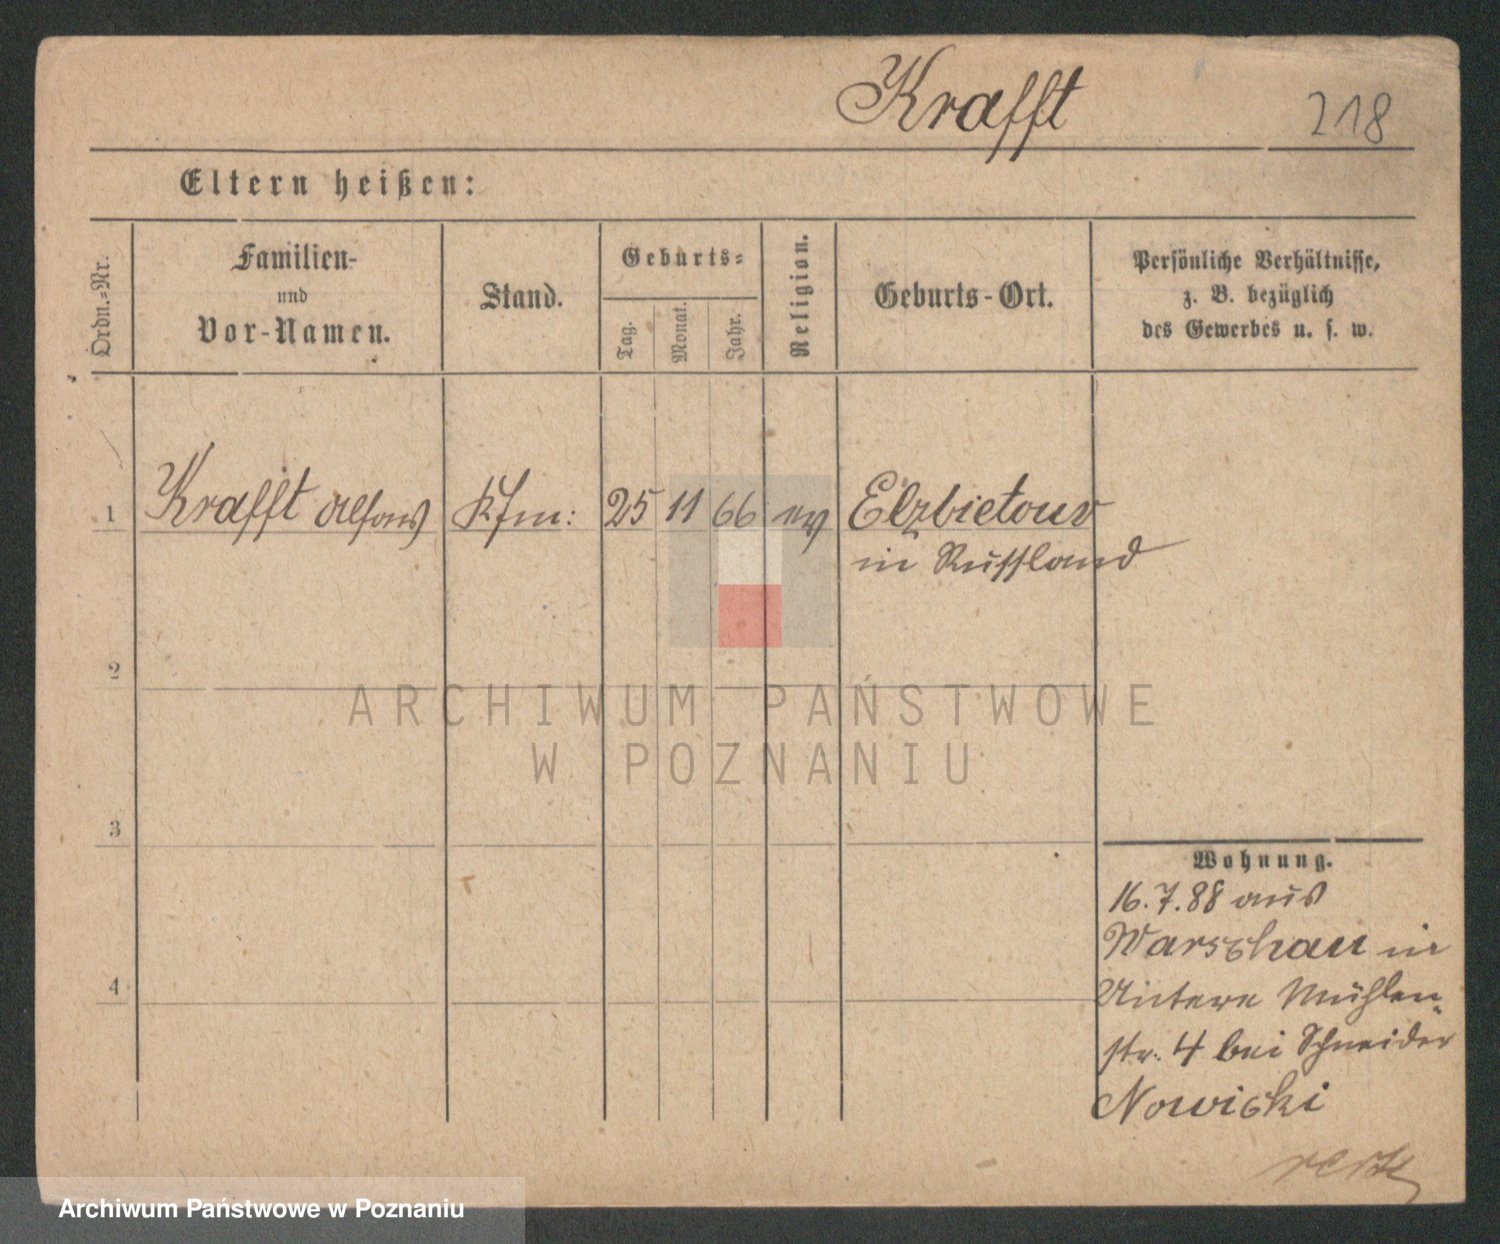 Krafft
218
Eltern heißen:
Ordn.-Nr.
Familien-
und
Vor-Namen.
Stand.
Geburts-
Tag.
Monat.
Jahr.
Religion.
Geburts-Ort.
Persönliche Verhältnisse,
z. B. bezüglich
des Gewerbes u. s. w.
1 Krafft Alfons Kfm: 25 11 66 ev Elzbietow
in Russland
2
ARCHIWUM PAŃSTWOWE
W POZNANIU
3
Wohnung.
16.7.88 aus
Warschau in
4
Untere Mühlen
str. 4 bei Schneider
Nowicki
Archiwum Państwowe w Poznaniu